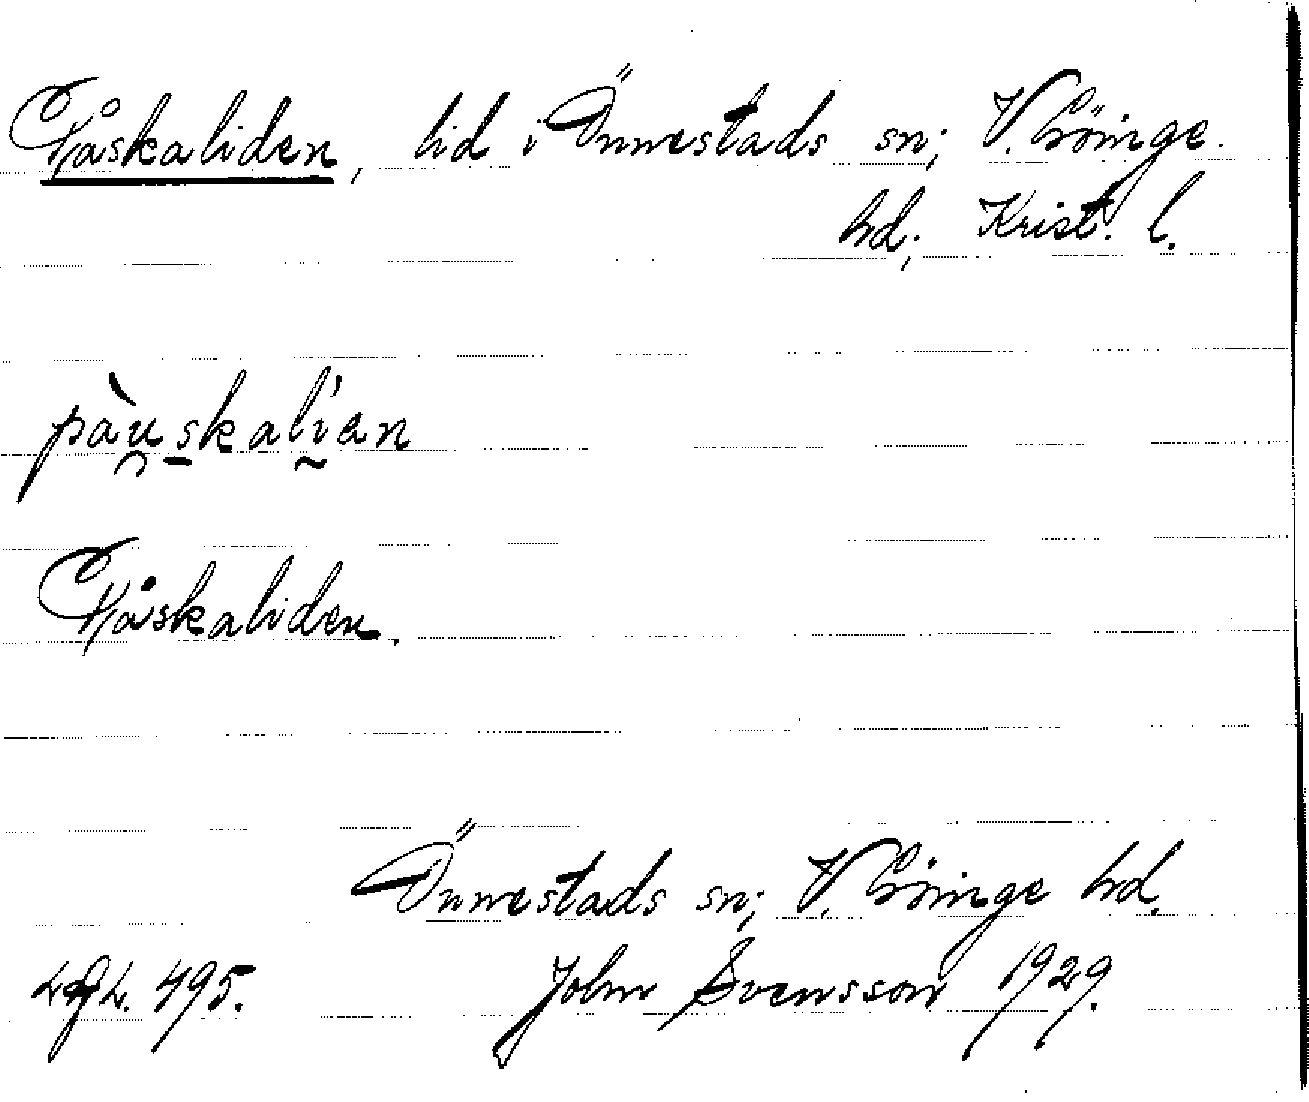 Påskaliden, lid i Önnestads sn; V. Göinge.
hd; Krist. l.
pàu̯s̱kalḭ́an
Påskaliden.
Önnestads sn; V. Göinge hd.
495. John Svensson 1929.